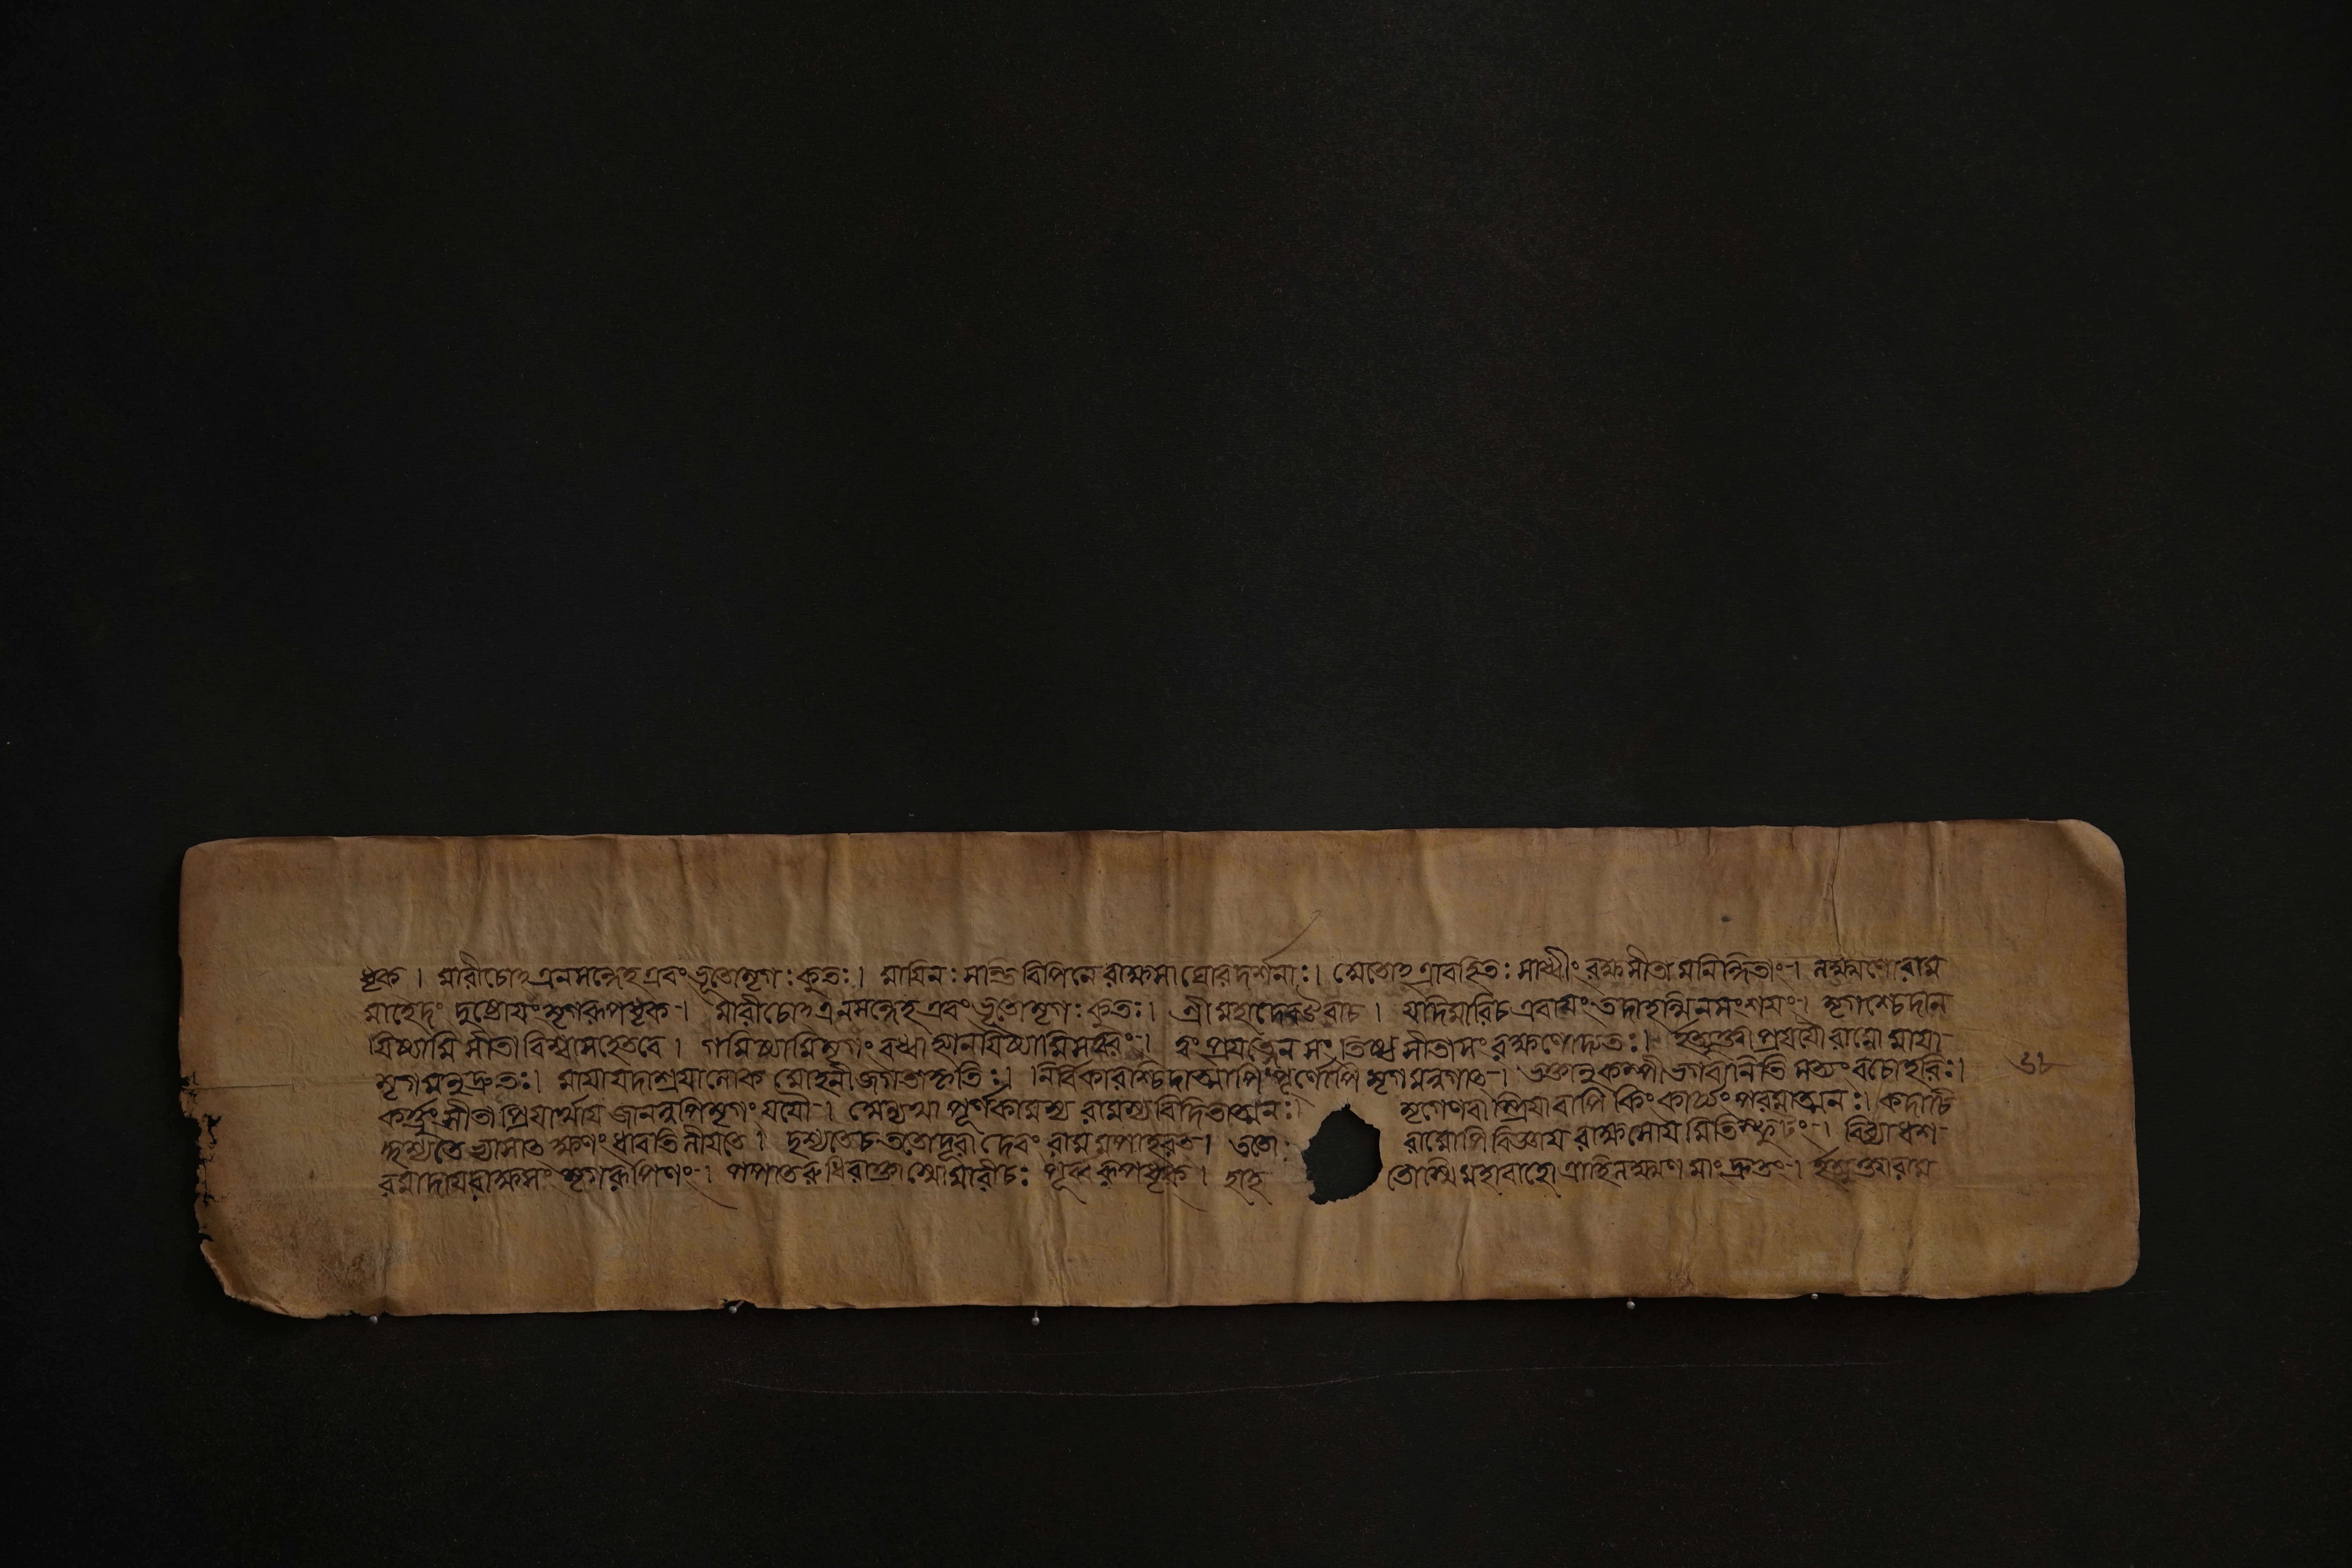 ধৃক । মারীচোত্রনসন্দেহ এবংভূতোমৃগঃকুতঃ। মাযিনঃসান্তিবিপিনে রাক্ষসা ঘোরদর্শনাঃ। মেতোত্রাবহিতঃসাধ্বীংরক্ষসীতামনিন্দিতাং। লক্ষ্মণোরাম
মাহেদং দুষ্টোযংমৃগরূপধৃক। মারীচোত্রনসন্দেহ এবংভূতোমৃগঃকুতঃ। শ্রীমহাদেবউবাচ। যদিমারিচএবাযংতদাহন্মিনসংশযং। মৃগশ্চেদান
যিষ্যামি সীতাবিশ্বাসহেতবে। গমিষ্যামিমৃগংবধ্বাহ্যানযিষ্যামিসত্বরং। ত্বংপ্রযত্নেনসংতিষ্ঠসীতাসংরক্ষণোদ্যতঃ। ইত্যুক্তাপ্রযযৌরামোমাযা
মৃগমনুদ্রুতঃ। মাযাযদাশ্রযালোকমোহনীজগতাকৃতিঃ। নির্বিকারশ্চিদাত্মাপিপূর্ণোপিমৃগমন্বগাত। ভক্তানুকম্পীভগবানিতিসত্যংবচোহরিঃ।
কর্ত্তুংসীতাপ্রিযার্থাযজানন্নপিমৃগংযযৌ। অন্যথাপূর্ণকামস্য রামস্যবিদিতাত্মনঃ। মৃগেণবাস্ত্রিযাবাপিকিংকার্য্যংপরমাত্মনঃ। কদাচি
দ্দৃশ্যতেভ্যাসাত ক্ষণংধাবতিলীযতে। দৃশ্যতেচততোদূরাদেবংরামমপাহরত। ততো রামোপিবিজ্ঞায রাক্ষসোযমিতিস্ফুটং। বিব্যাধশ
রমাদাযরাক্ষসংমৃগরূপিণং। পপাতরুধিরাক্তাস্যোমারীচঃ পূর্ব্বরূপধৃক। হাহ তোস্মিমহাবাহোত্রাহিলক্ষ্মণমাংদ্রুতং। ইত্যুক্তারাম
৬৮